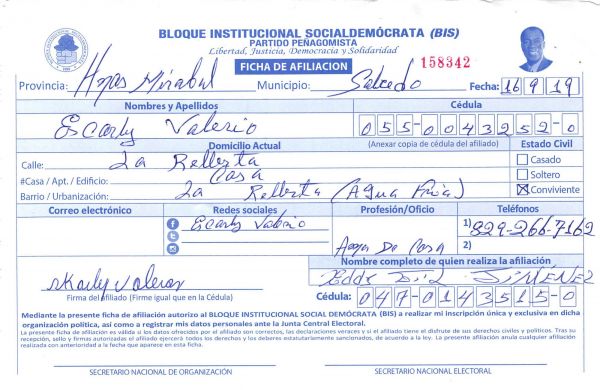 BLOQUE INSTITUCIONAL SOCIALDEMÓCRATA (BIS)
PARTIDO PEÑAGOMISTA
Libertad, Justicia, Democracia y Solidaridad
FICHA DE AFILIACION
158342
Provincia: Hnas Mirabal Municipio: Salcedo Fecha: 16 9 19
Nombres y Apellidos Cédula
Escarly Valerio 055-0043252-0
Domicilio Actual (Anexar copia de cédula del afiliado) Estado Civil
Calle: La Rellerta Casado
#Casa / Apt. / Edificio: Casa Soltero
Barrio / Urbanización: La Rellerta (Agua Fria) Conviviente
Correo electrónico Redes sociales Profesión/Oficio Teléfonos
Escarly Valerio 1) 829-266-7162
Ama De Casa 2)
Nombre completo de quien realiza la afiliación
JIMÉNEZ
Firma del afiliado (Firme igual que en la Cédula) Cédula: 047-0143515-0
Mediante la presente ficha de afiliación autorizo al BLOQUE INSTITUCIONAL SOCIAL DEMÓCRATA (BIS) a realizar mi inscripción única y exclusiva en dicha
organización política, así como a registrar mis datos personales ante la Junta Central Electoral.
La presente ficha de afiliación es válida si los datos ofrecidos por el afiliado son correctos, las declaraciones veraces y si el afiliado tiene el disfrute de sus derechos civiles y políticos. Tras su
recepción, sello y firmas autorizadas el afiliado ejercerá todos los derechos y los deberes estatutariamente sancionados, de acuerdo a la ley. La presente afiliación anula cualquier afiliación
realizada con anterioridad a la fecha que aparece en esta ficha.
SECRETARIO NACIONAL DE ORGANIZACIÓN SECRETARIO NACIONAL ELECTORAL